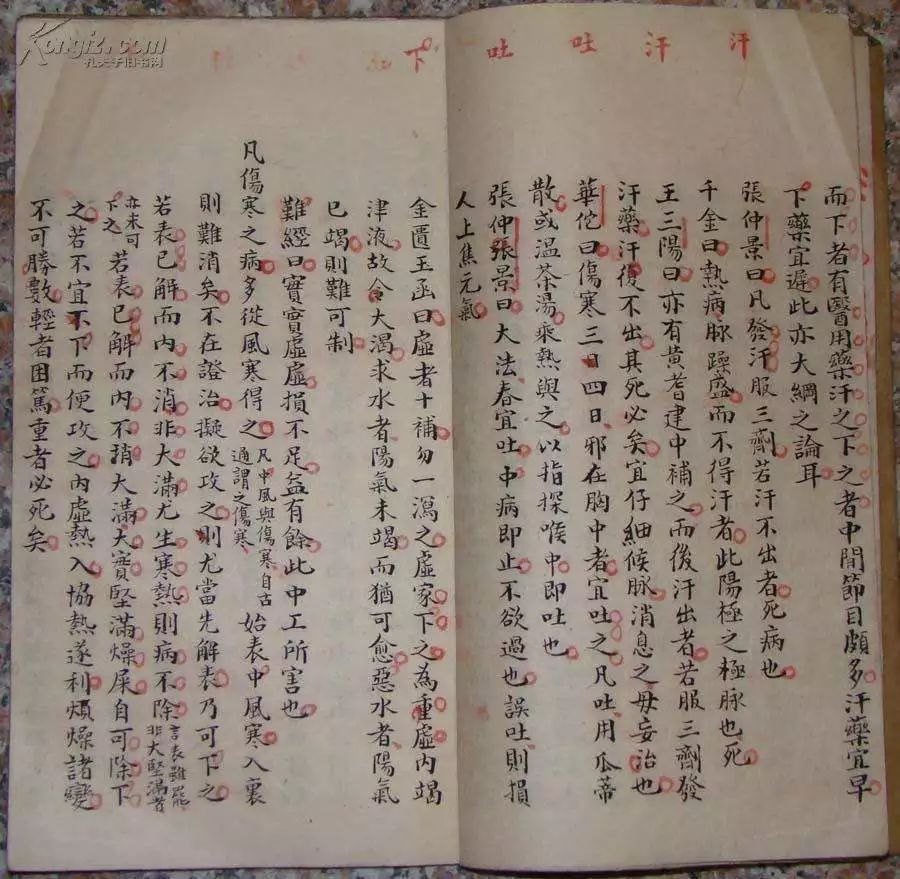 汗 汗 吐 吐
而下者有醫用藥汗之下之者中間節目頗多汗藥宜早
下藥宜遲此亦大綱之論耳
張仲景曰凡發汗服三劑若汗不出者死病也
千金曰熱病脉躁盛而不得汗者此陽極之極脉也死
王三陽曰亦有黃耆建中補之而後汗出者若服三劑發
汗藥汗復不出其死必矣宜仔細候脉消息之毋妄治也
華佗曰傷寒三日四日邪在胸中者宜吐之凡吐用瓜蒂
散或温茶湯乘熱與之以指探喉中即吐也
張仲張景曰大法春宜吐中病即止不欲過也誤吐則損
人上焦元氣
下
金匱玉函曰虛者十補勿一瀉之虛家下之為重虛內竭
津液故令大渴求水者陽氣未竭而猶可愈惡水者陽氣
已竭則難可制
難經曰實實虛虛損不足益有餘此中工所害也
凡傷寒之病多從風寒得之凡中風與傷寒自古通謂之傷寒始表中風寒入裏
則難消矣不在證治擬欲攻之則尤當先解表乃可下之
若表已解而內不消非大滿尤生寒熱則病不除言表雖罷非大堅滿者
亦未可下之若表已解而內不消大滿大實堅滿燥屎自可除下
之若不宜不下而便攻之內虛熱入協熱遂利煩燥諸變
不可勝數輕者困篤重者必死矣
Kongfz.com
孔夫子旧书网